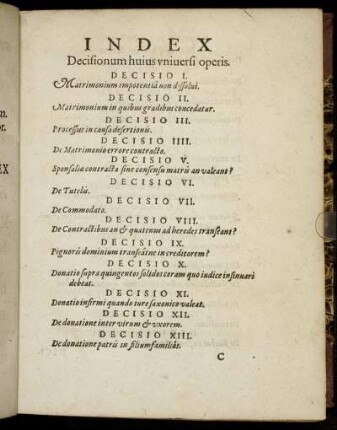 INDEX
Decisionum huius vniuersi operis.
DECISIO I.
Matrimonium impotentiâ non dissolui.
DECISIO II.
Matrimonium in quibus gradibus concedatur.
DECISIO III.
Processus in causa desertionis.
DECISIO IIII.
De Matrimonio errore contracto.
DECISIO V.
Sponsalia contracta sine consensu matris an valeant?
DECISIO VI.
De Tutelis.
DECISIO VII.
De Commodato.
DECISIO VIII.
De Contractibus an & quatenus ad heredes transeant?
DECISIO IX.
Pignoris dominium transeátne in creditorem?
DECISIO X.
Donatio supra quingentos solidos coram quo iudice insinuari
debeat.
DECISIO XI.
Donatio infirmi quando iure saxonico valeat.
DECISIO XII.
De donatione inter virum & vxorem.
DECISIO XIII.
De donatione patris in filiumfamiliâs.
C